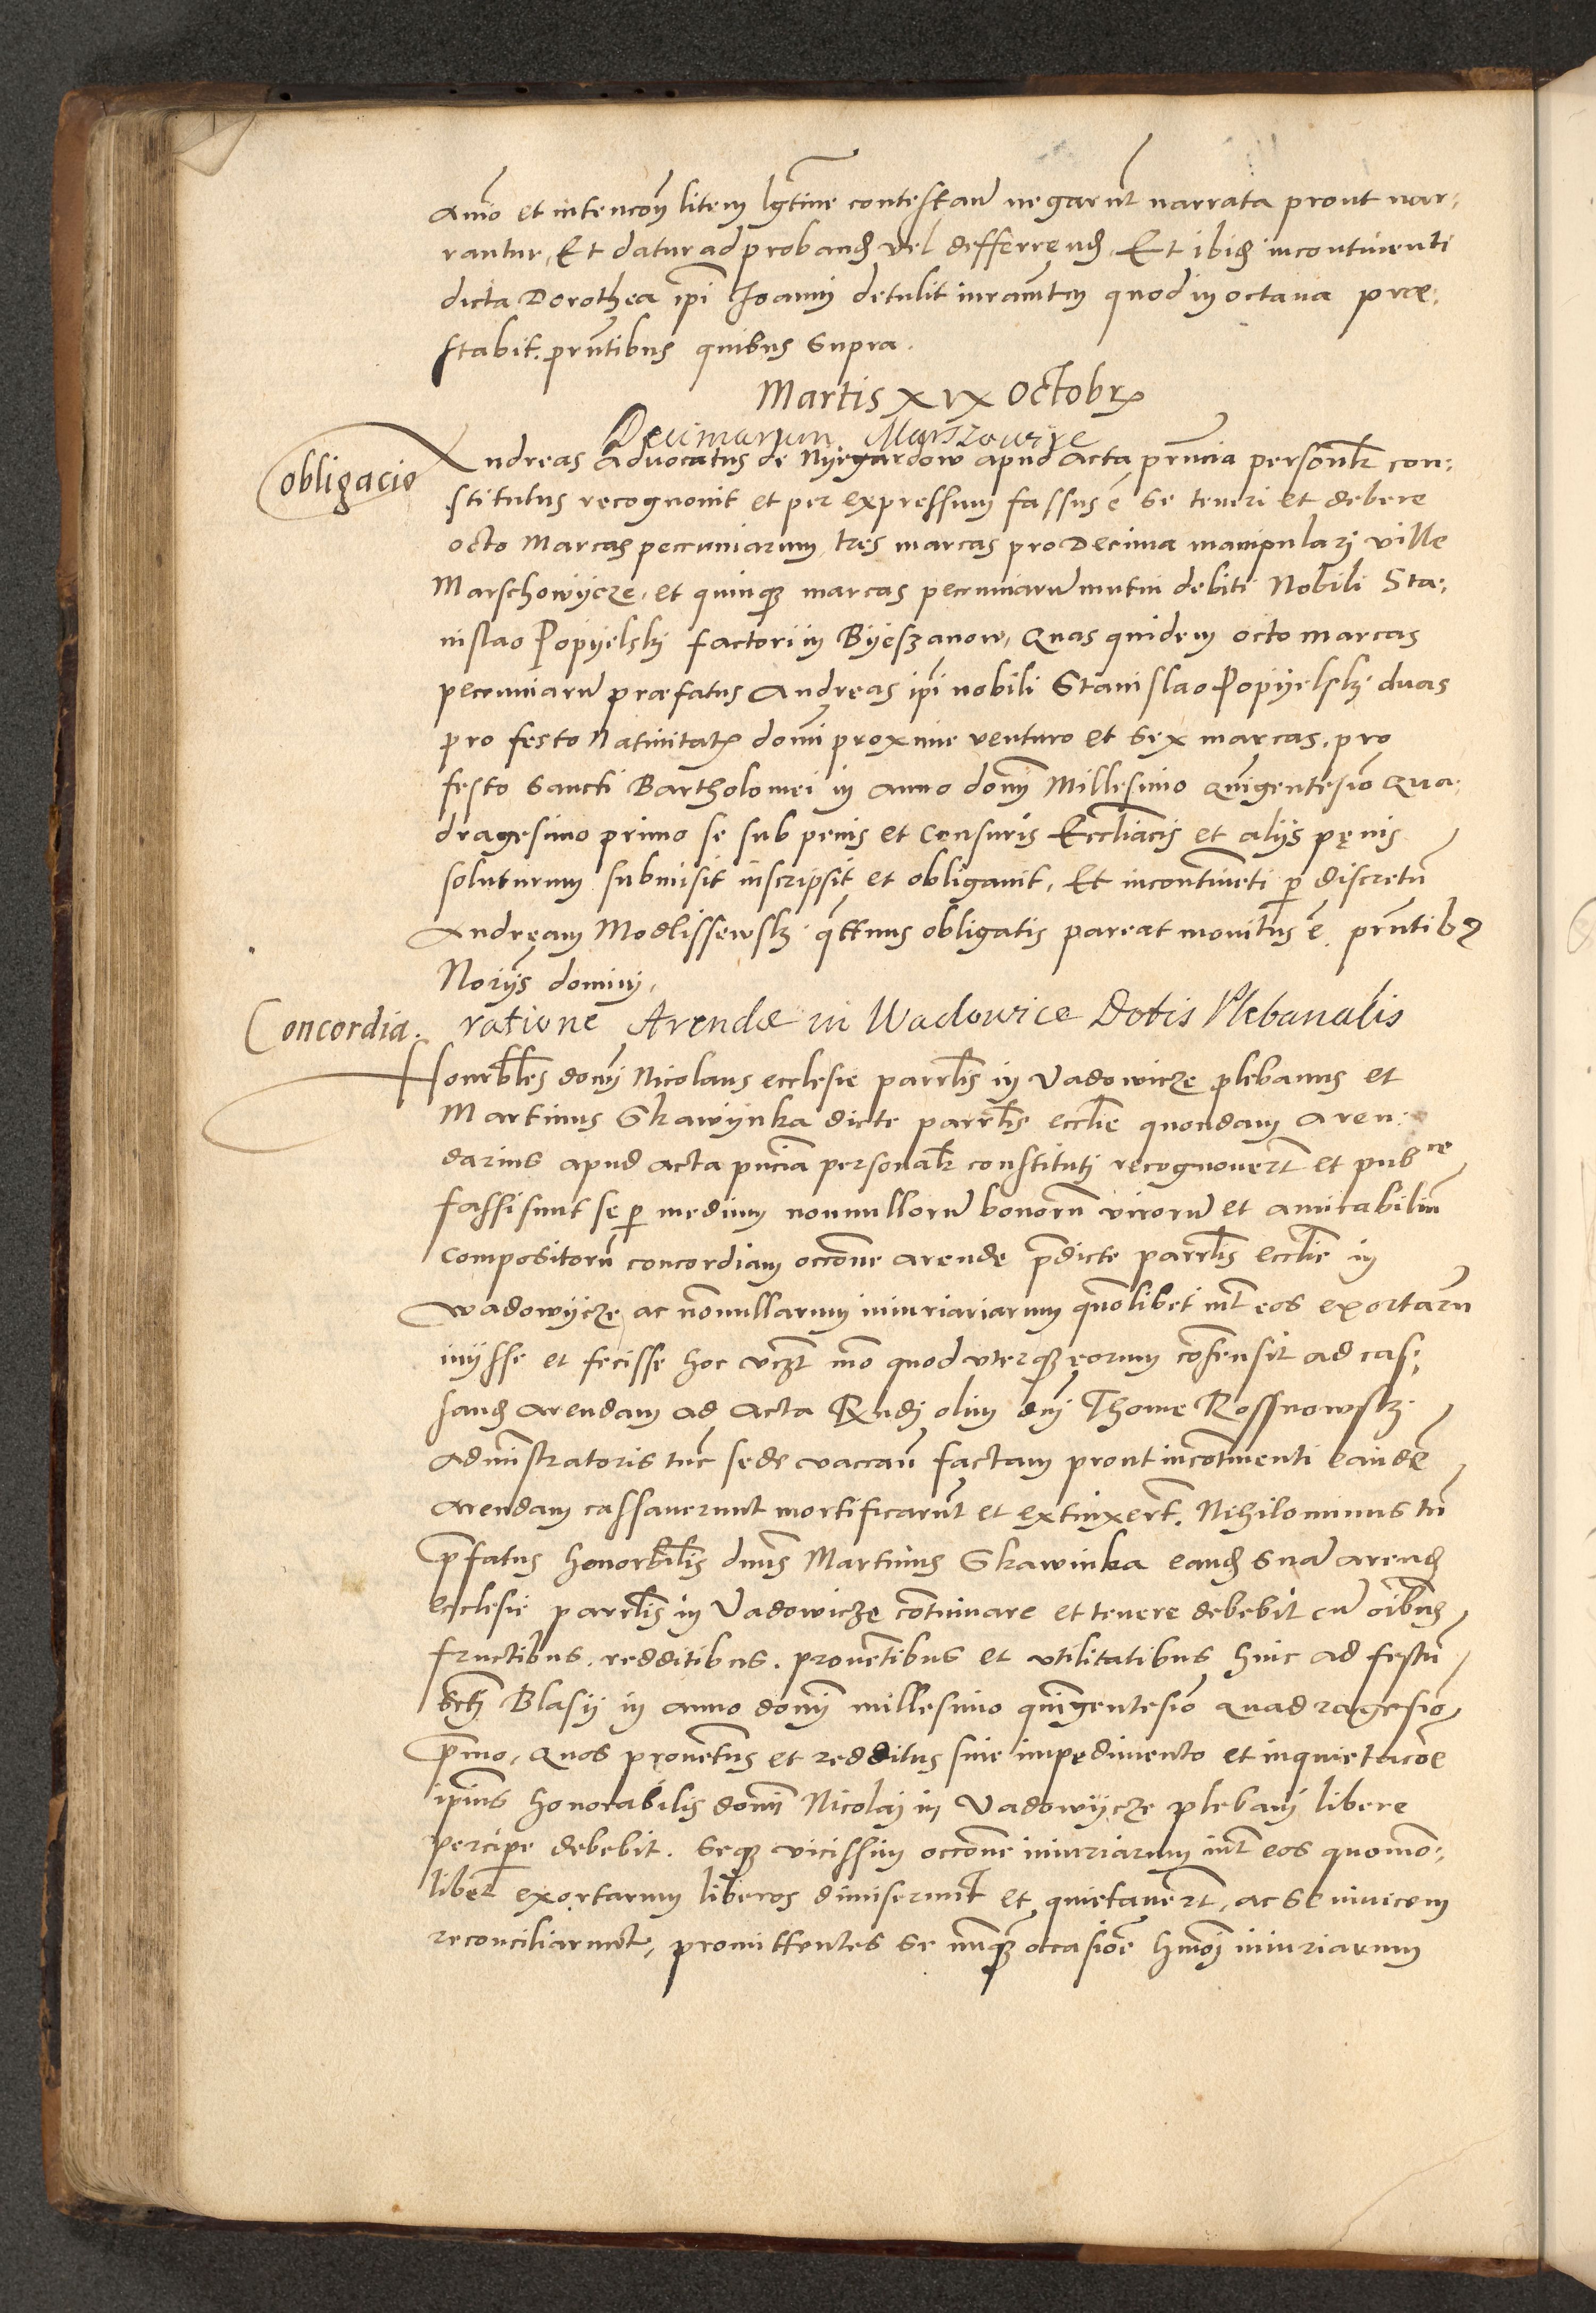 Animo et intencony litem lgttime contestan negarunt narrata prout nar:
rantur, Et datur ad proband vel defferrend. Et ibid incontinenti
dicta Dorothea ipi Joanni detulit iuramtum quod in octava prae:
stabit. prntibus quibus supra.
Martis XIX Octobr
Decimarum Marszowice
obligacio
Andreas advocatus de Nyegardow apud acta prncia personlr con:
stitutus recognovit et per expressum fassus e se teneri et debere
octo Marcas peccuniarum, tres marcas pro Decima manipulari ville
Marschowycze, et quinque marcas pecuniaru mutui debiti Nobili Sta:
nislao Popyelskj factori in Byeszanow, Quas quidem octo marcas
peccuniaru praefatus Andreas ipi nobili Stanislao Popyelskj duas
pro festo Nativitatis domi proxime venturo et sex marcas, pro
festo Sancti Bartholomei in anno domj Millesimo quingentesio Qua:
dragesimo primo se sub penis et Censuris Ecclîacis et alijs penis
soluturum submisit inscripsit et obligavit, Et incontineti p discretu
Andream Modlissewskj qttnus obligatis pareat monitus e prntibus
Norijs dominj
Concordia. ratione Arendae in Wadowice Dotis Plebanalis
Honrbles domj Nicolaus ecclesie parrlis in Vadowicze plebanus et
Martinus Skawynka dicte parrlis ecclie quondam aren:
darius apud acta pncia personalr constituti recognovert et pubce
fassi sunt se p medium nonnulloru bonoru viroru et amicabiliu
compositoru concordiam occone arende pdicte parrlis ecclie in
Wadowycze, ac nonnullarum iniuriariarum quolibet int eos exortaru
inijsse et fecisse hoc vczt mo quod uterque eorum consensit ad cas:
sand arendam ad Acta Rndj olim dnj Thome Rossnowskj
administratoris tuc sede vaccan factam prout incontinenti eande
arendam cassaverunt mortificarut et extinxert. Nihilominus tn
pfatus honorbilis dnus Martinus Skawinka eand sua arend
ecclesie parrlis in Vadowicze continuare et tenere debebit cu oibus
fructibus, redditibus, proventibus et utilitatibus hinc ad festu
Scti Blasij in anno domj millesimo quingentesio quadragesio
pmo, Quos proventus et redditus sine impedimento et inquietacoe
ipius honorabilis domi Nicolaj in Vadowycze plebanj libere
percipe debebit. Seque vicissim occone iniuriarum int eos quomo:
libet exortarum liberos dimiserunt et quietavert, ac se invicem
reconciliarunt, promittentes se nunque occasioe hmoj iniuriarum